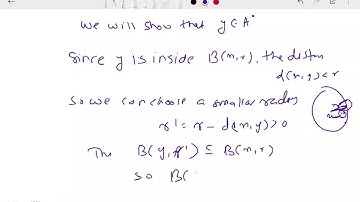 We will show that y ∈ A°
Since y is inside B(x,r), the distan
d(x,y) < r
So we can choose a smaller radius
r' = r - d(x,y) > 0
The B(y, r') ⊆ B(x,r)
So B(